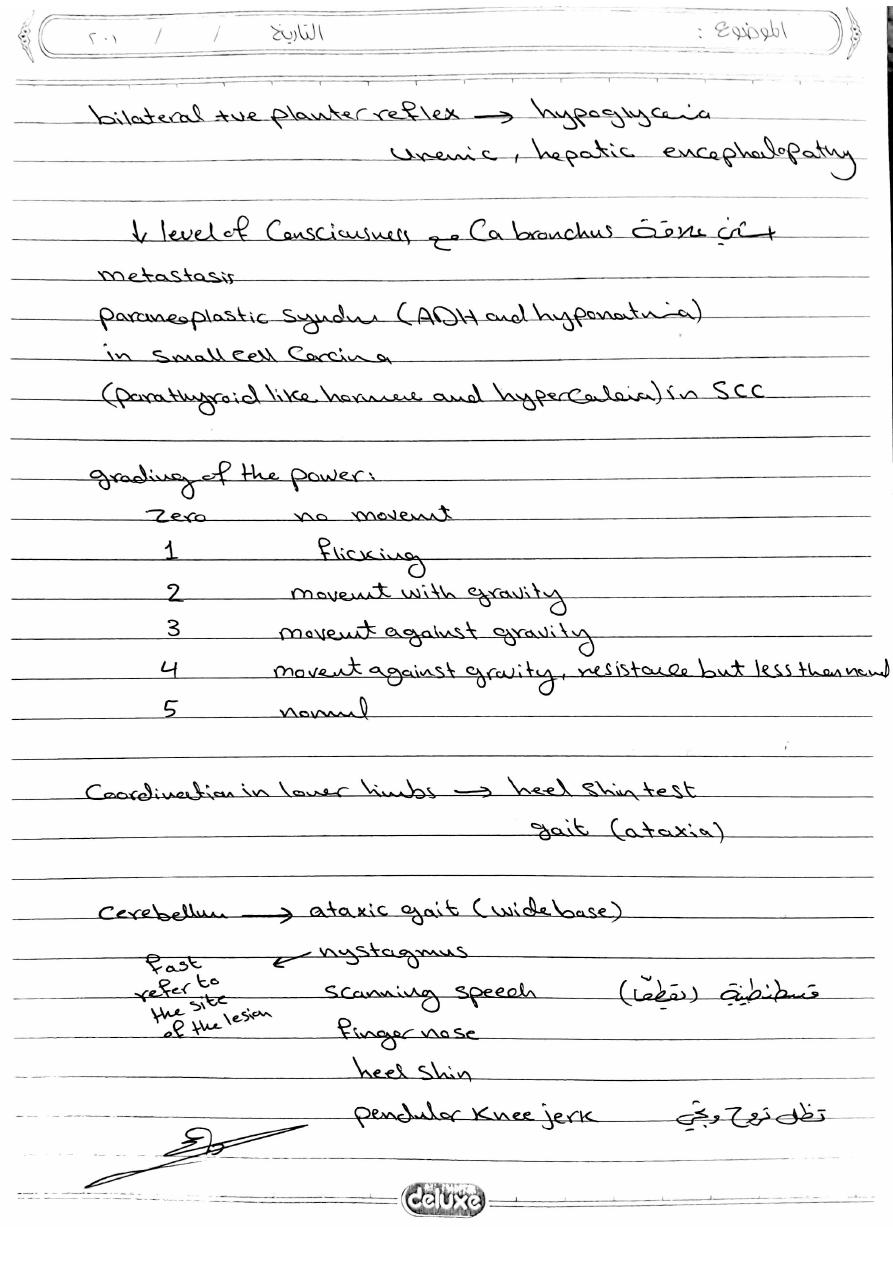 الموضوع :
التاريخ / / ٢٠١
bilateral +ve planter reflex → hypoglyceia
uremic , hepatic encephalopathy
↓ level of Consciousness مع Ca bronchus
metastasis
paraneoplastic syndm (ADH and hyponatmia)
in small cell Carcina
(parathyroid like hormne and hypercalcia) in SCC
grading of the power:
Zero no movemt
1 flicking
2 movemt with gravity
3 movemt against gravity
4 movent against gravity, resistance but less then normal
5 normal
Coordination in lower limbs → heel shin test
gait (ataxia)
cerebellum → ataxic gait (wide base)
nystagmus
fast
refer to
the site
of the lesion
scanning speech قسطنطينية (تقطعها)
finger nose
heel shin
pendular Knee jerk تظل تروح وتجي
deluxe